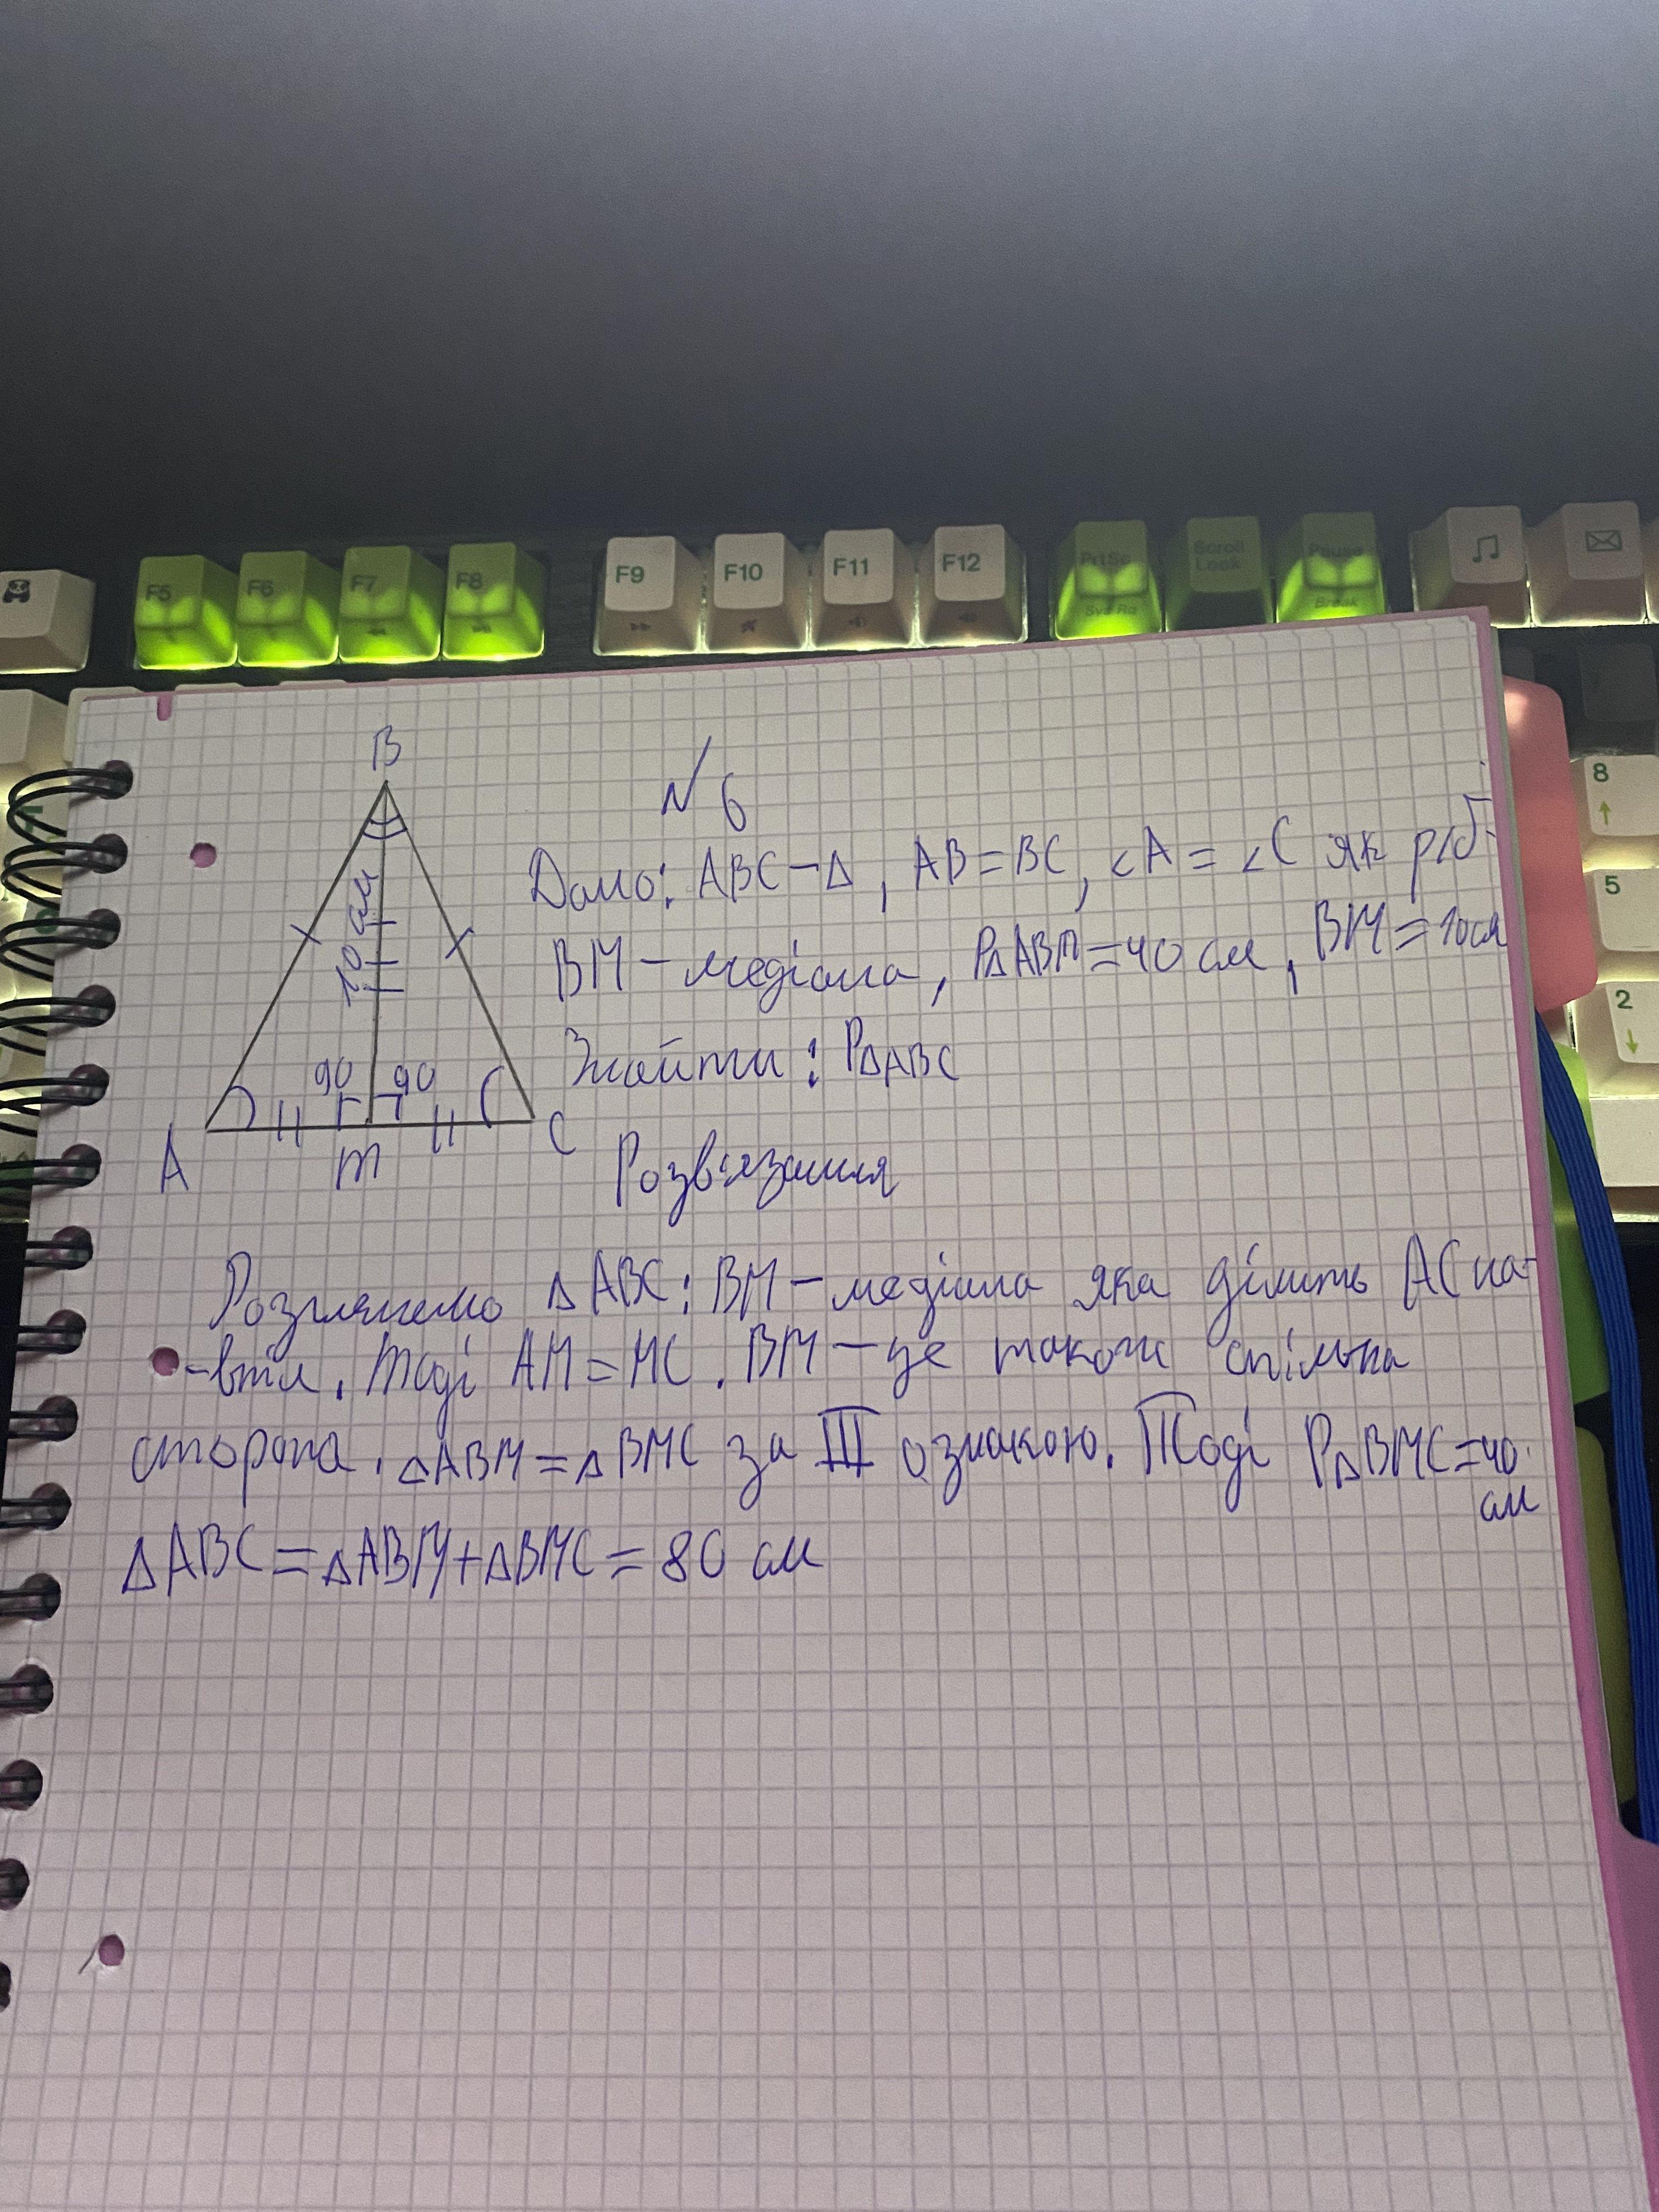 F5 F6 F7 F8 F9 F10 F11 F12 PrtSc Scroll Lock Pause
SysRq Break
8
5
2
B
№6
Дано: ABC-∆, AB=BC, ∠A=∠C як р/б
10 см
BM-медіана, P∆ABM=40 см, BM=10см
Знайти: P∆ABC
90 90
A M C
Розв'язання
Розглянемо ∆ABC: BM-медіана яка ділить AC на-
-впіл. Тоді AM=MC. BM-це також спільна
сторона. ∆ABM=∆BMC за III ознакою. Тоді P∆BMC=40
см
∆ABC=∆ABM+∆BMC=80 см